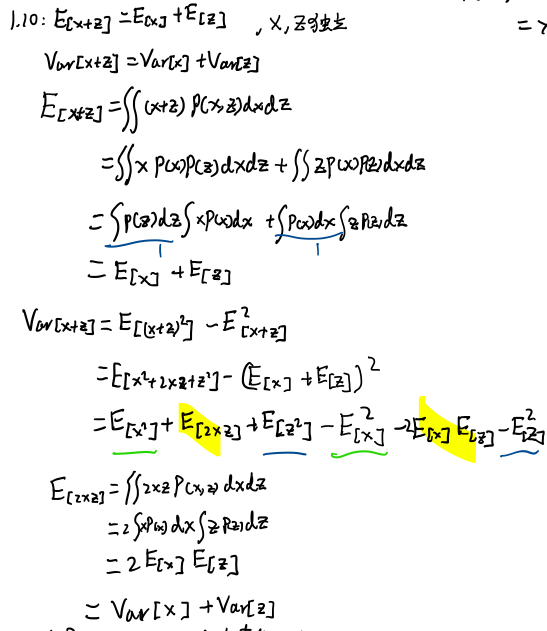 1.10: E[x+z] = E[x] + E[z] , x, z独立 =>
Var[x+z] = Var[x] + Var[z]
E[x+z] = ∬(x+z) P(x,z)dxdz
= ∬x P(x)P(z)dxdz + ∬ zP(x)P(z)dxdz
= ∫P(z)dz∫xP(x)dx + ∫P(x)dx∫zP(z)dz
1 1
= E[x] + E[z]
Var[x+z] = E[(x+z)²] - E²[x+z]
= E[x²+2xz+z²] - (E[x] + E[z])²
= E[x²] + E[2xz] + E[z²] - E²[x] - 2E[x] E[z] - E²[z]
E[2xz] = ∬2xz P(x,z) dxdz
= 2∫xP(x)dx∫z P(z)dz
= 2E[x] E[z]
= Var[x] + Var[z]